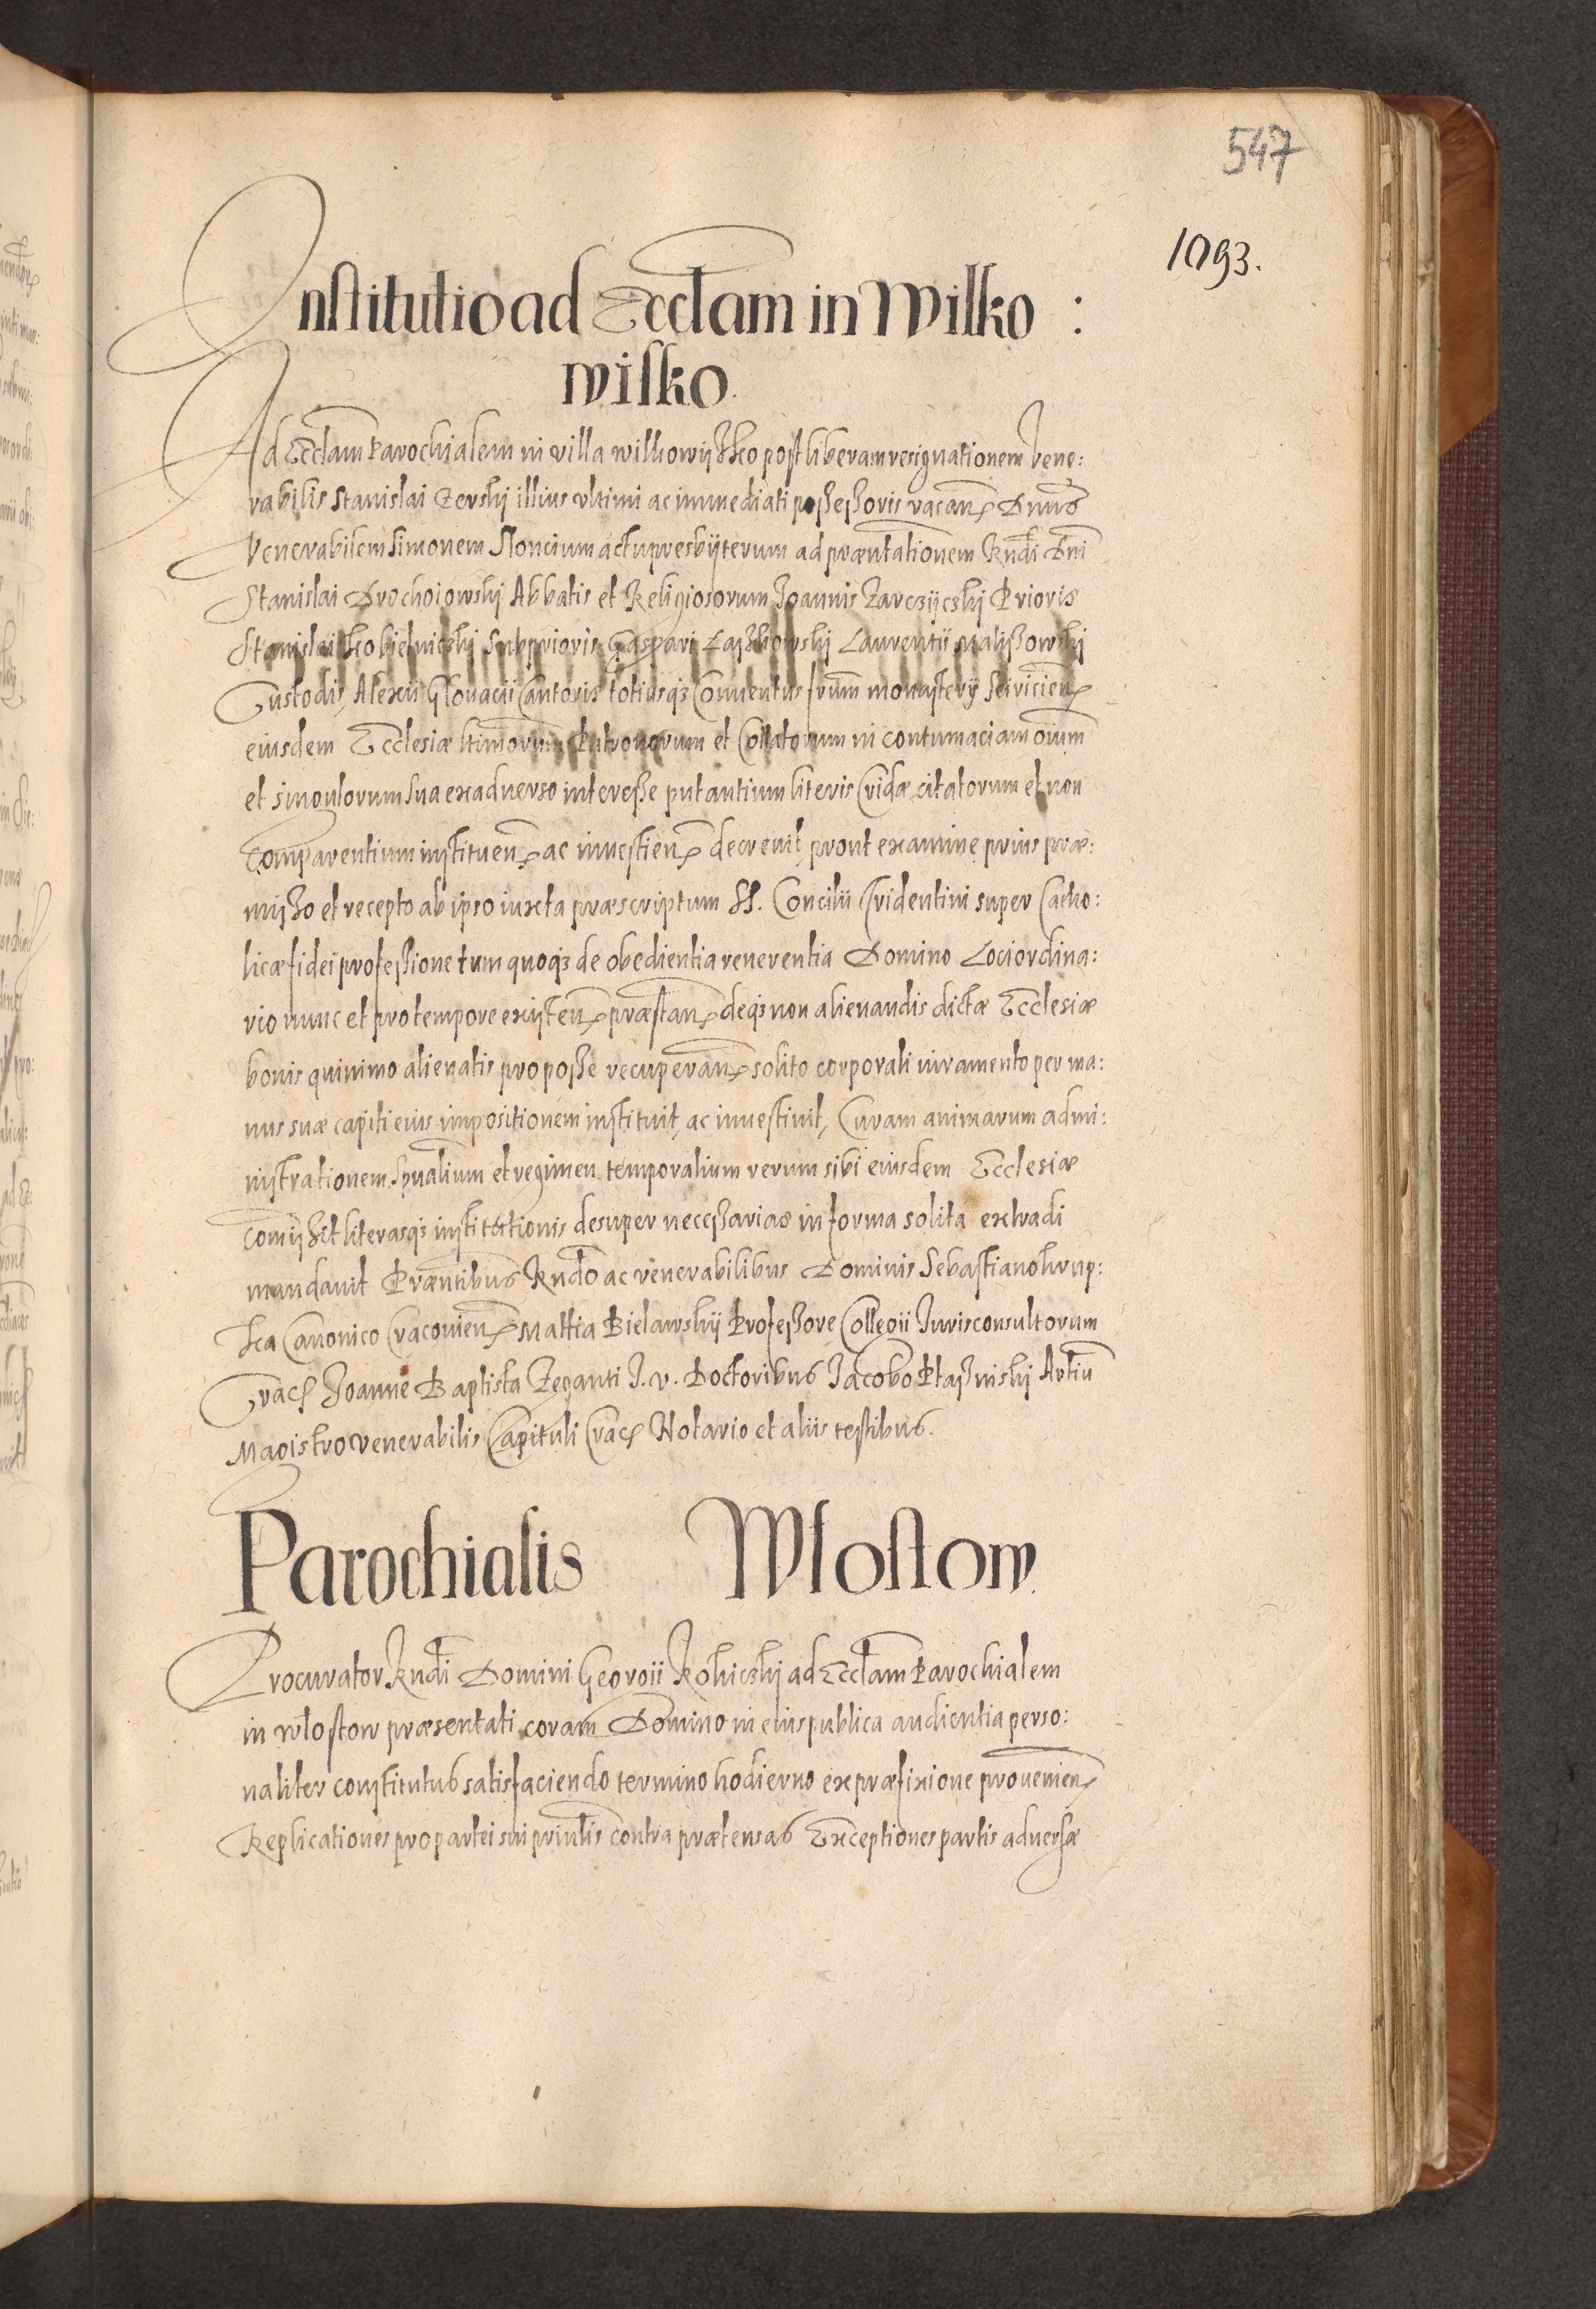 547
1093.
Institutio ad Eccłam in Wilko :
wisko.
Ad Eccłam Parochialem in villa wilkowijsko post liberam resignationem Vene:
rabilis Stanislai Zerski illius vltimi ac immediati possessoris vacanꝭ Dnus
Venerabilem Simonem Sloncium actu presbÿterum ad præntationem Rndi Dni
Stanislai Drochoiowski Abbatis et Religiosorum Joannis Zarczÿcski Prioris
Stanislai Kobielnicski Subprioris Gaspari Laskowski Laurentii Malissowski
Custodis, Alexii Glouacii Cantoris totiusqȝ Conuentus frum monasterÿ Sciricienꝭ
eiusdem Ecclesiæ ltimorum Patronorum et Collatorum in contumaciam oium
et singulorum sua ex aduerso interesse putantium literis Cridæ citatorum et non
comparentium instituenꝭ ac inuestienꝭ decreuit, prout examine prius præ:
misso et recepto ab ipso iuxta præscriptum SS. Concilii Tridentini super Catho:
licæ fidei professione tum quoqȝ de obedientia reuerentia Domino Lociordina:
rio nunc et pro tempore existenꝭ præstanꝭ deqȝ non alienandis dictæ Ecclesiæ
bonis quinimo alienatis pro posse recuperanꝭ solito corporali iuramento per ma:
nus suæ capiti eius impositionem instituit, ac inuestiuit, Curam animarum admi:
nistrationem Spualium et regimen temporalium rerum sibi eiusdem Ecclesiæ
comÿsit literasqȝ institutionis desuper necessarias in forma solita extradi
mandauit Præntibus Rndo ac venerabilibus Dominis Sebastiano Krup:
ka Canonico Cracouienꝭ Mattia Bielawskÿ Professore Collegii Jurisconsultorum
Cracꝭ Joanne Baptista Zeganti J. V. Doctoribus Jacobo Ptassinski Artiu
Magistro venerabilis Capituli Cracꝭ Notario et aliis testibus.
Parochialis Wlostow.
Procurator Rndi Domini Georgii Rokicski ad Eccłam Parochialem
in wlostow præsentati coram Domino in eius publica audientia perso:
naliter constitutus satisfaciendo termino hodierno ex præfixione prouenienꝭ
Replicationes pro parte sui prinlis contra prætensas Exceptiones partis aduersæ